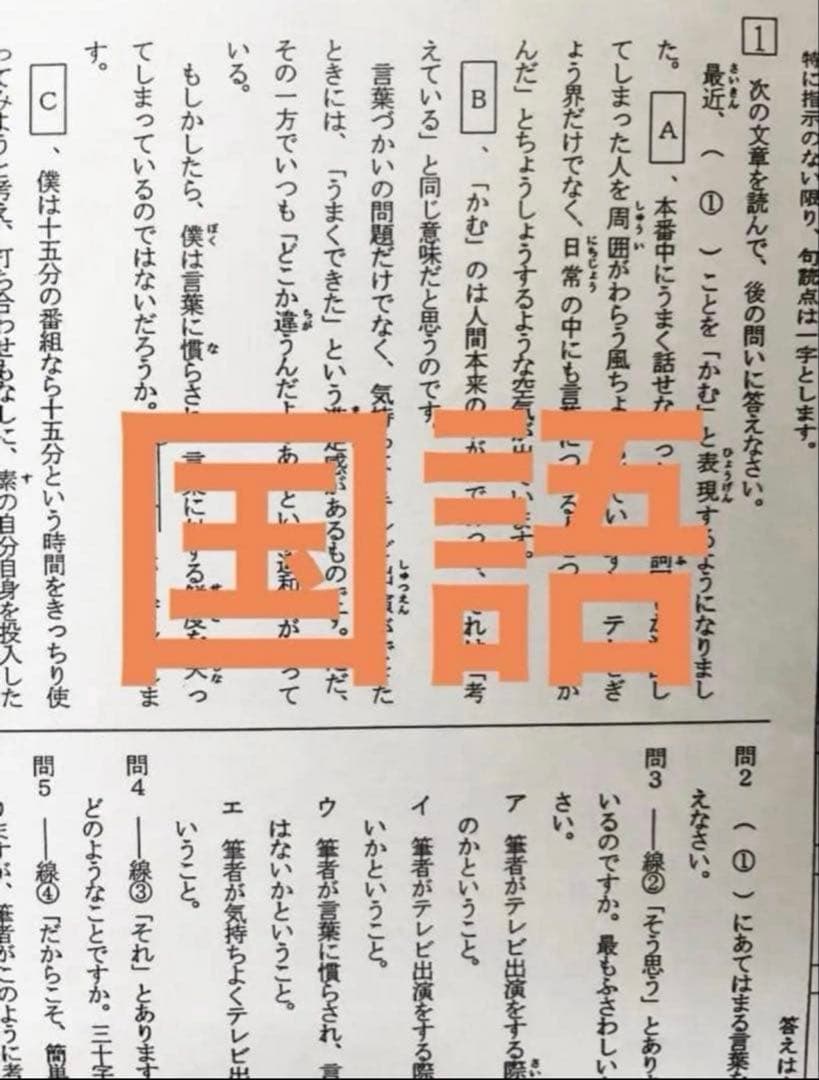 特に指示のない限り、句読点は一字とします。
1 次の文章を読んで、後の問いに答えなさい。
最近、（ ① ）ことを「かむ」と表現するようになりまし
た。 A 、本番中にうまく話せな
てしまった人を周囲がわらう風ちょ
ょう界だけでなく、日常の中にも言葉に
んだ」とちょうしょうするような空気が出ています。
B 、「かむ」のは人間本来の
えている」と同じ意味だと思うのです。
言葉づかいの問題だけでなく、気持ち
ときには、「うまくできた」という満足感があるものです。ただ、
その一方でいつも「どこか違うんだよ
いる。
もしかしたら、僕は言葉に慣らされ
てしまっているのではないだろうか。
す。
C 、僕は十五分の番組なら十五分という時間をきっちり使
ってみようと考え、打ち合わせもなしに、素の自分自身を投入した
国語
答えは
問2 （ ① ）にあてはまる言葉
えなさい。
問3 ――線②「そう思う」とあり
いるのですか。最もふさわしい
さい。
ア 筆者がテレビ出演をする際
のかということ。
イ 筆者がテレビ出演をする際
いかということ。
ウ 筆者が言葉に慣らされ、言
はないかということ。
エ 筆者が気持ちよくテレビ出
いうこと。
問4 ――線③「それ」とあります
どのようなことですか。三十字
問5 ――線④「だからこそ、簡単
りますが、筆者がこのように考